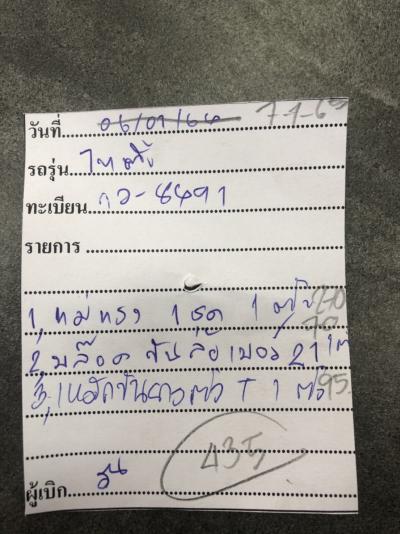 วันที่ 06/01/64 7-1-65
รถรุ่น ไทเกอร์
ทะเบียน กว-8491
รายการ
1, แม่แรง 1 ชุด 1 ตัว 270
70
2, บล๊อค ขันล้อ เบอร์ 21 1
3, เหล็กขันยาวตัว T 1 ตัว 95
435
ผู้เบิก